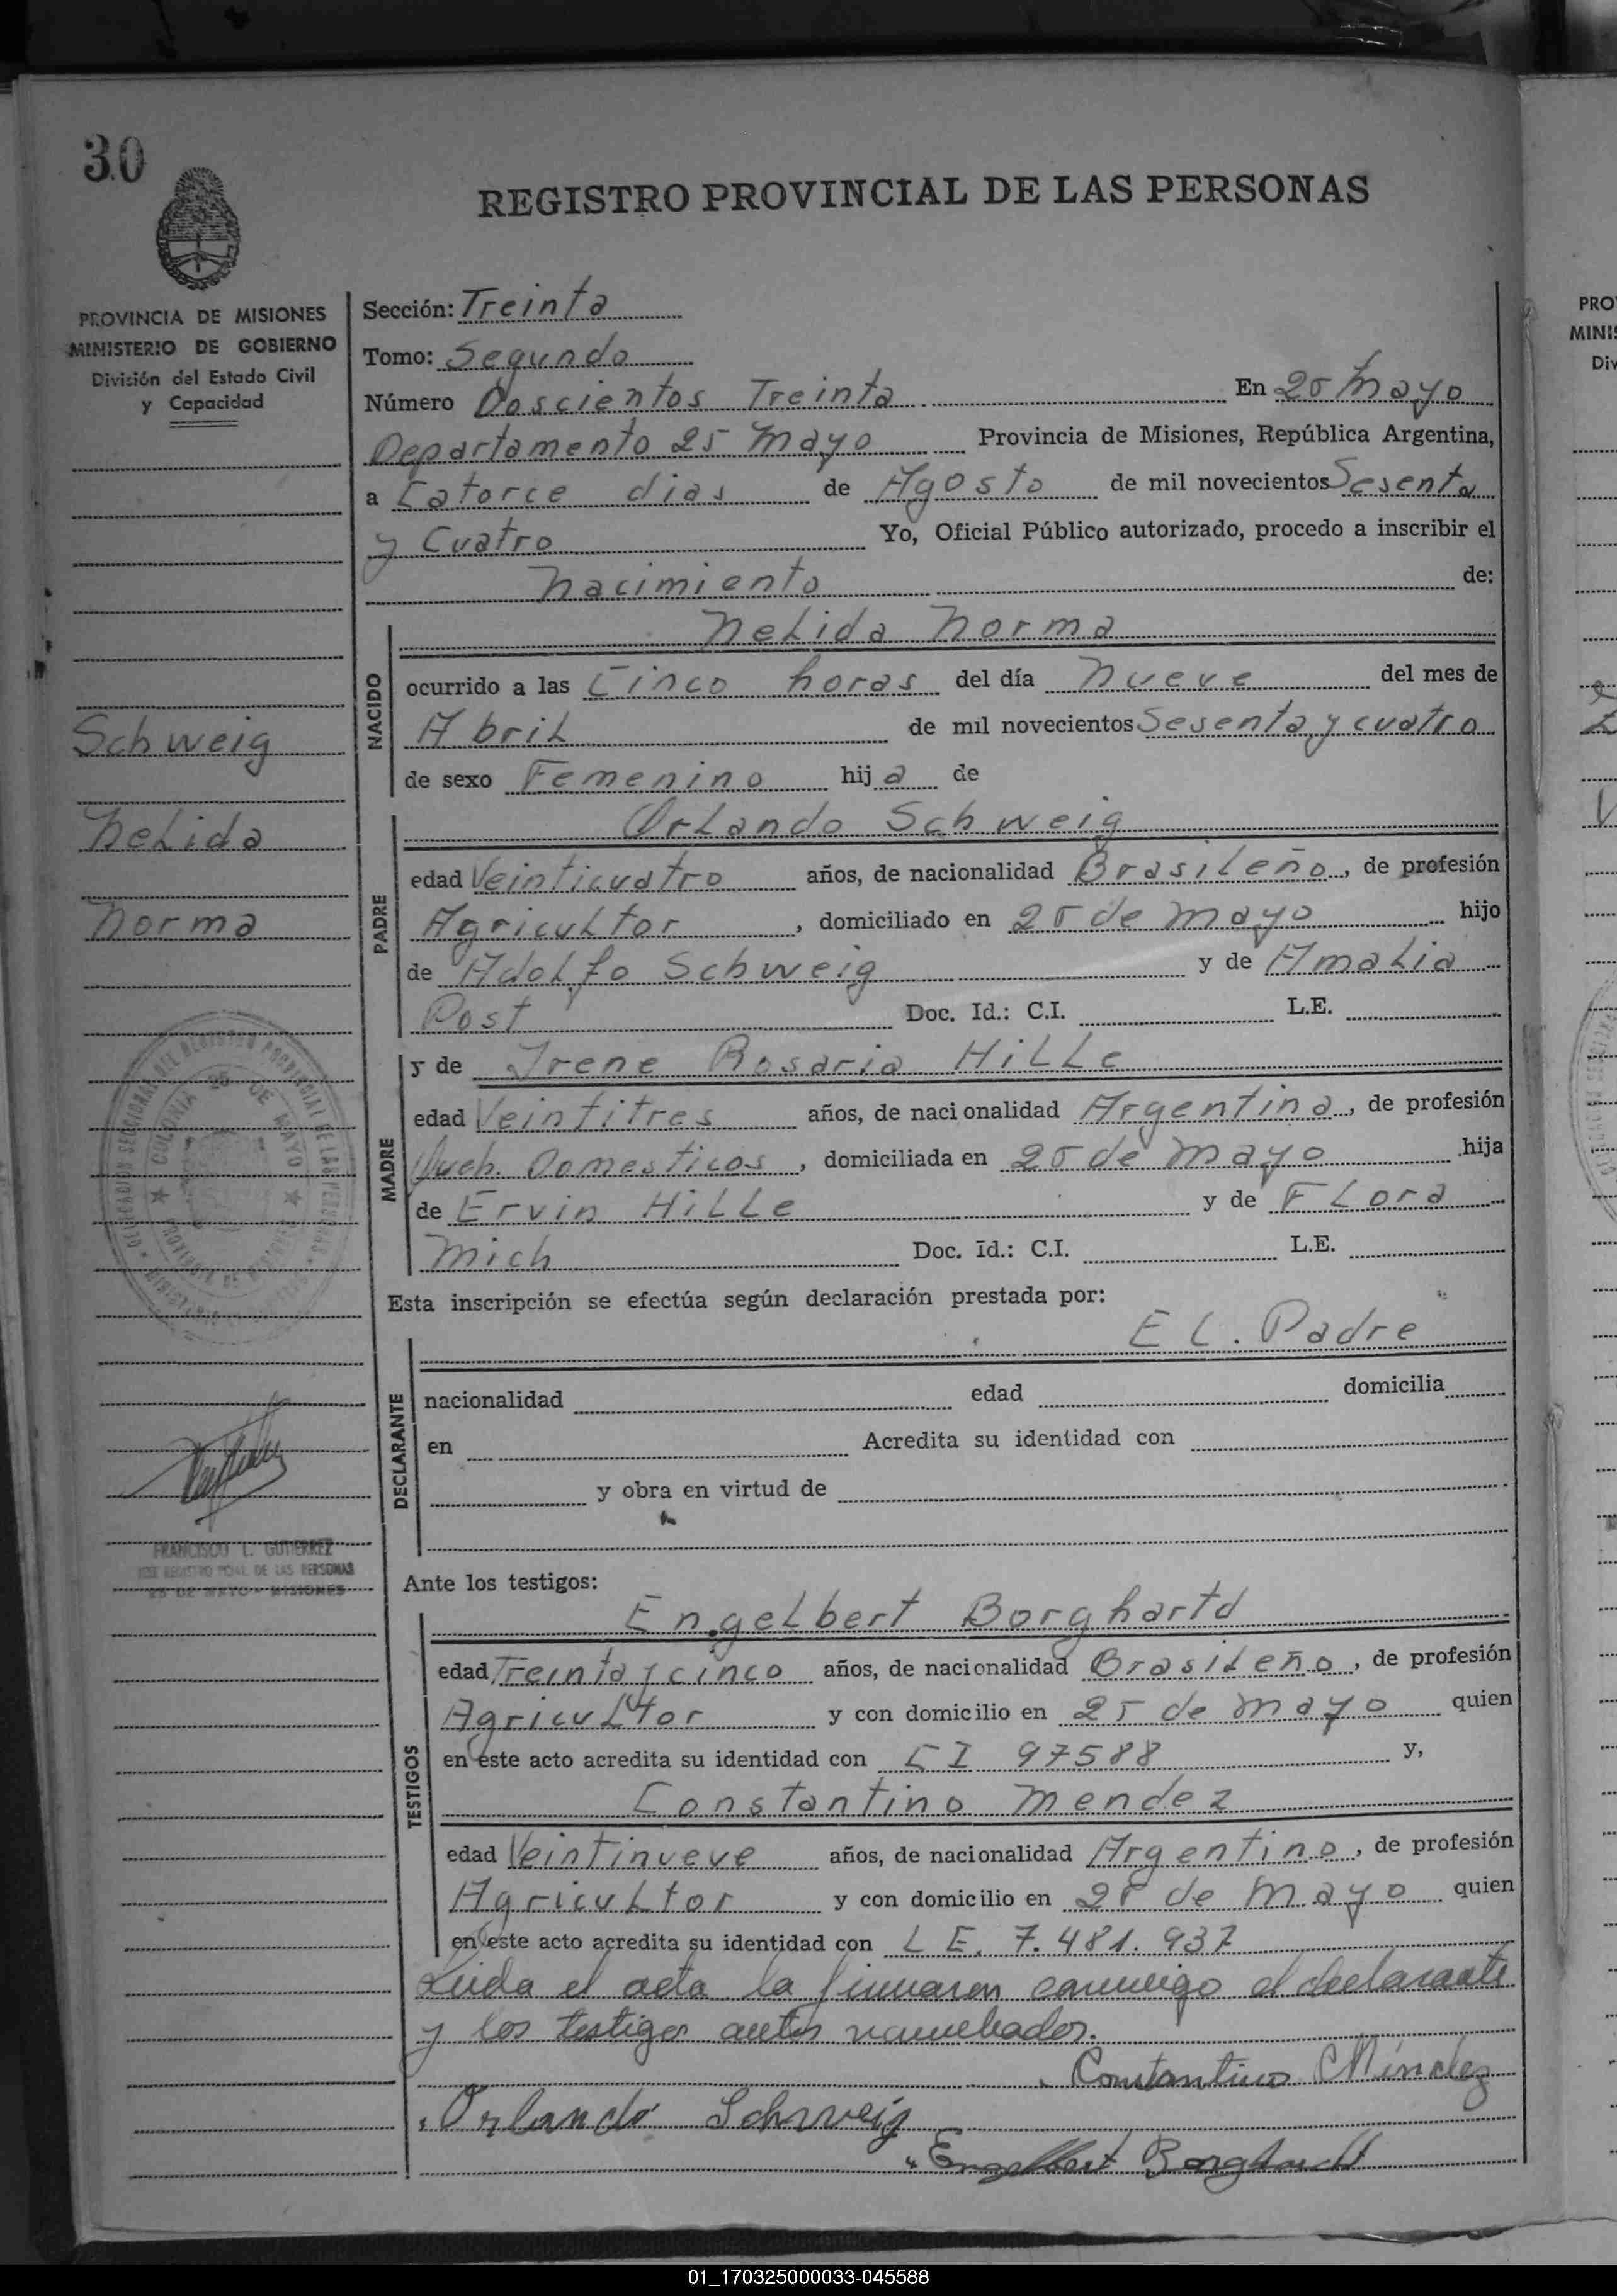 30
REGISTRO PROVINCIAL DE LAS PERSONAS
PROVINCIA DE MISIONES
MINISTERIO DE GOBIERNO
División del Estado Civil
y Capacidad
Schweig
Nelida
Norma
COLONIA 25 DE MAYO
FRANCISCO L. GUTIERREZ
JEFE REGISTRO PCIAL. DE LAS PERSONAS
25 DE MAYO - MISIONES
Sección: Treinta
Tomo: Segundo
Número Doscientos Treinta En 25 Mayo
Departamento 25 Mayo Provincia de Misiones, República Argentina,
a Catorce dias de Agosto de mil novecientos Sesenta
y Cuatro Yo, Oficial Público autorizado, procedo a inscribir el
Nacimiento de:
NACIDO
Nelida Norma
ocurrido a las Cinco horas del día Nueve del mes de
Abril de mil novecientos Sesenta y cuatro
de sexo Femenino hij a de
PADRE
Orlando Schweig
edad Veinticuatro años, de nacionalidad Brasileño, de profesión
Agricultor, domiciliado en 25 de Mayo hijo
de Adolfo Schweig y de Amalia
Post Doc. Id.: C.I. L.E.
MADRE
y de Irene Rosaria Hille
edad Veintitres años, de nacionalidad Argentina, de profesión
Queh. Domesticos, domiciliada en 25 de Mayo hija
de Ervin Hille y de Flora
Mich Doc. Id.: C.I. L.E.
Esta inscripción se efectúa según declaración prestada por:
DECLARANTE
El. Padre
nacionalidad edad domicilia
en Acredita su identidad con
y obra en virtud de
Ante los testigos:
TESTIGOS
Engelbert Borghartd
edad Treinta y cinco años, de nacionalidad Brasileño, de profesión
Agricultor y con domicilio en 25 de Mayo quien
en este acto acredita su identidad con CI 97588 y,
Constantino Mendez
edad Veintinueve años, de nacionalidad Argentino, de profesión
Agricultor y con domicilio en 25 de Mayo quien
en este acto acredita su identidad con L E. 7.481.937
Leida el acta la firmaron conmigo el declarante
y los testigos antes nombrados.
Constantino Méndez
Orlando Schweig
Engelbert Borghardt
PRO
MINIS
Div
01_170325000033-045588